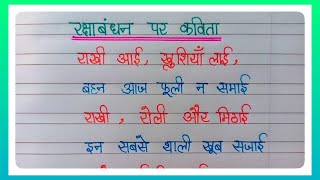 रक्षाबंधन पर कविता
राखी आई, खुशियाँ लाई,
बहन आज फूली न समाई
राखी, रोली और मिठाई
इन सबसे थाली खूब सजाई